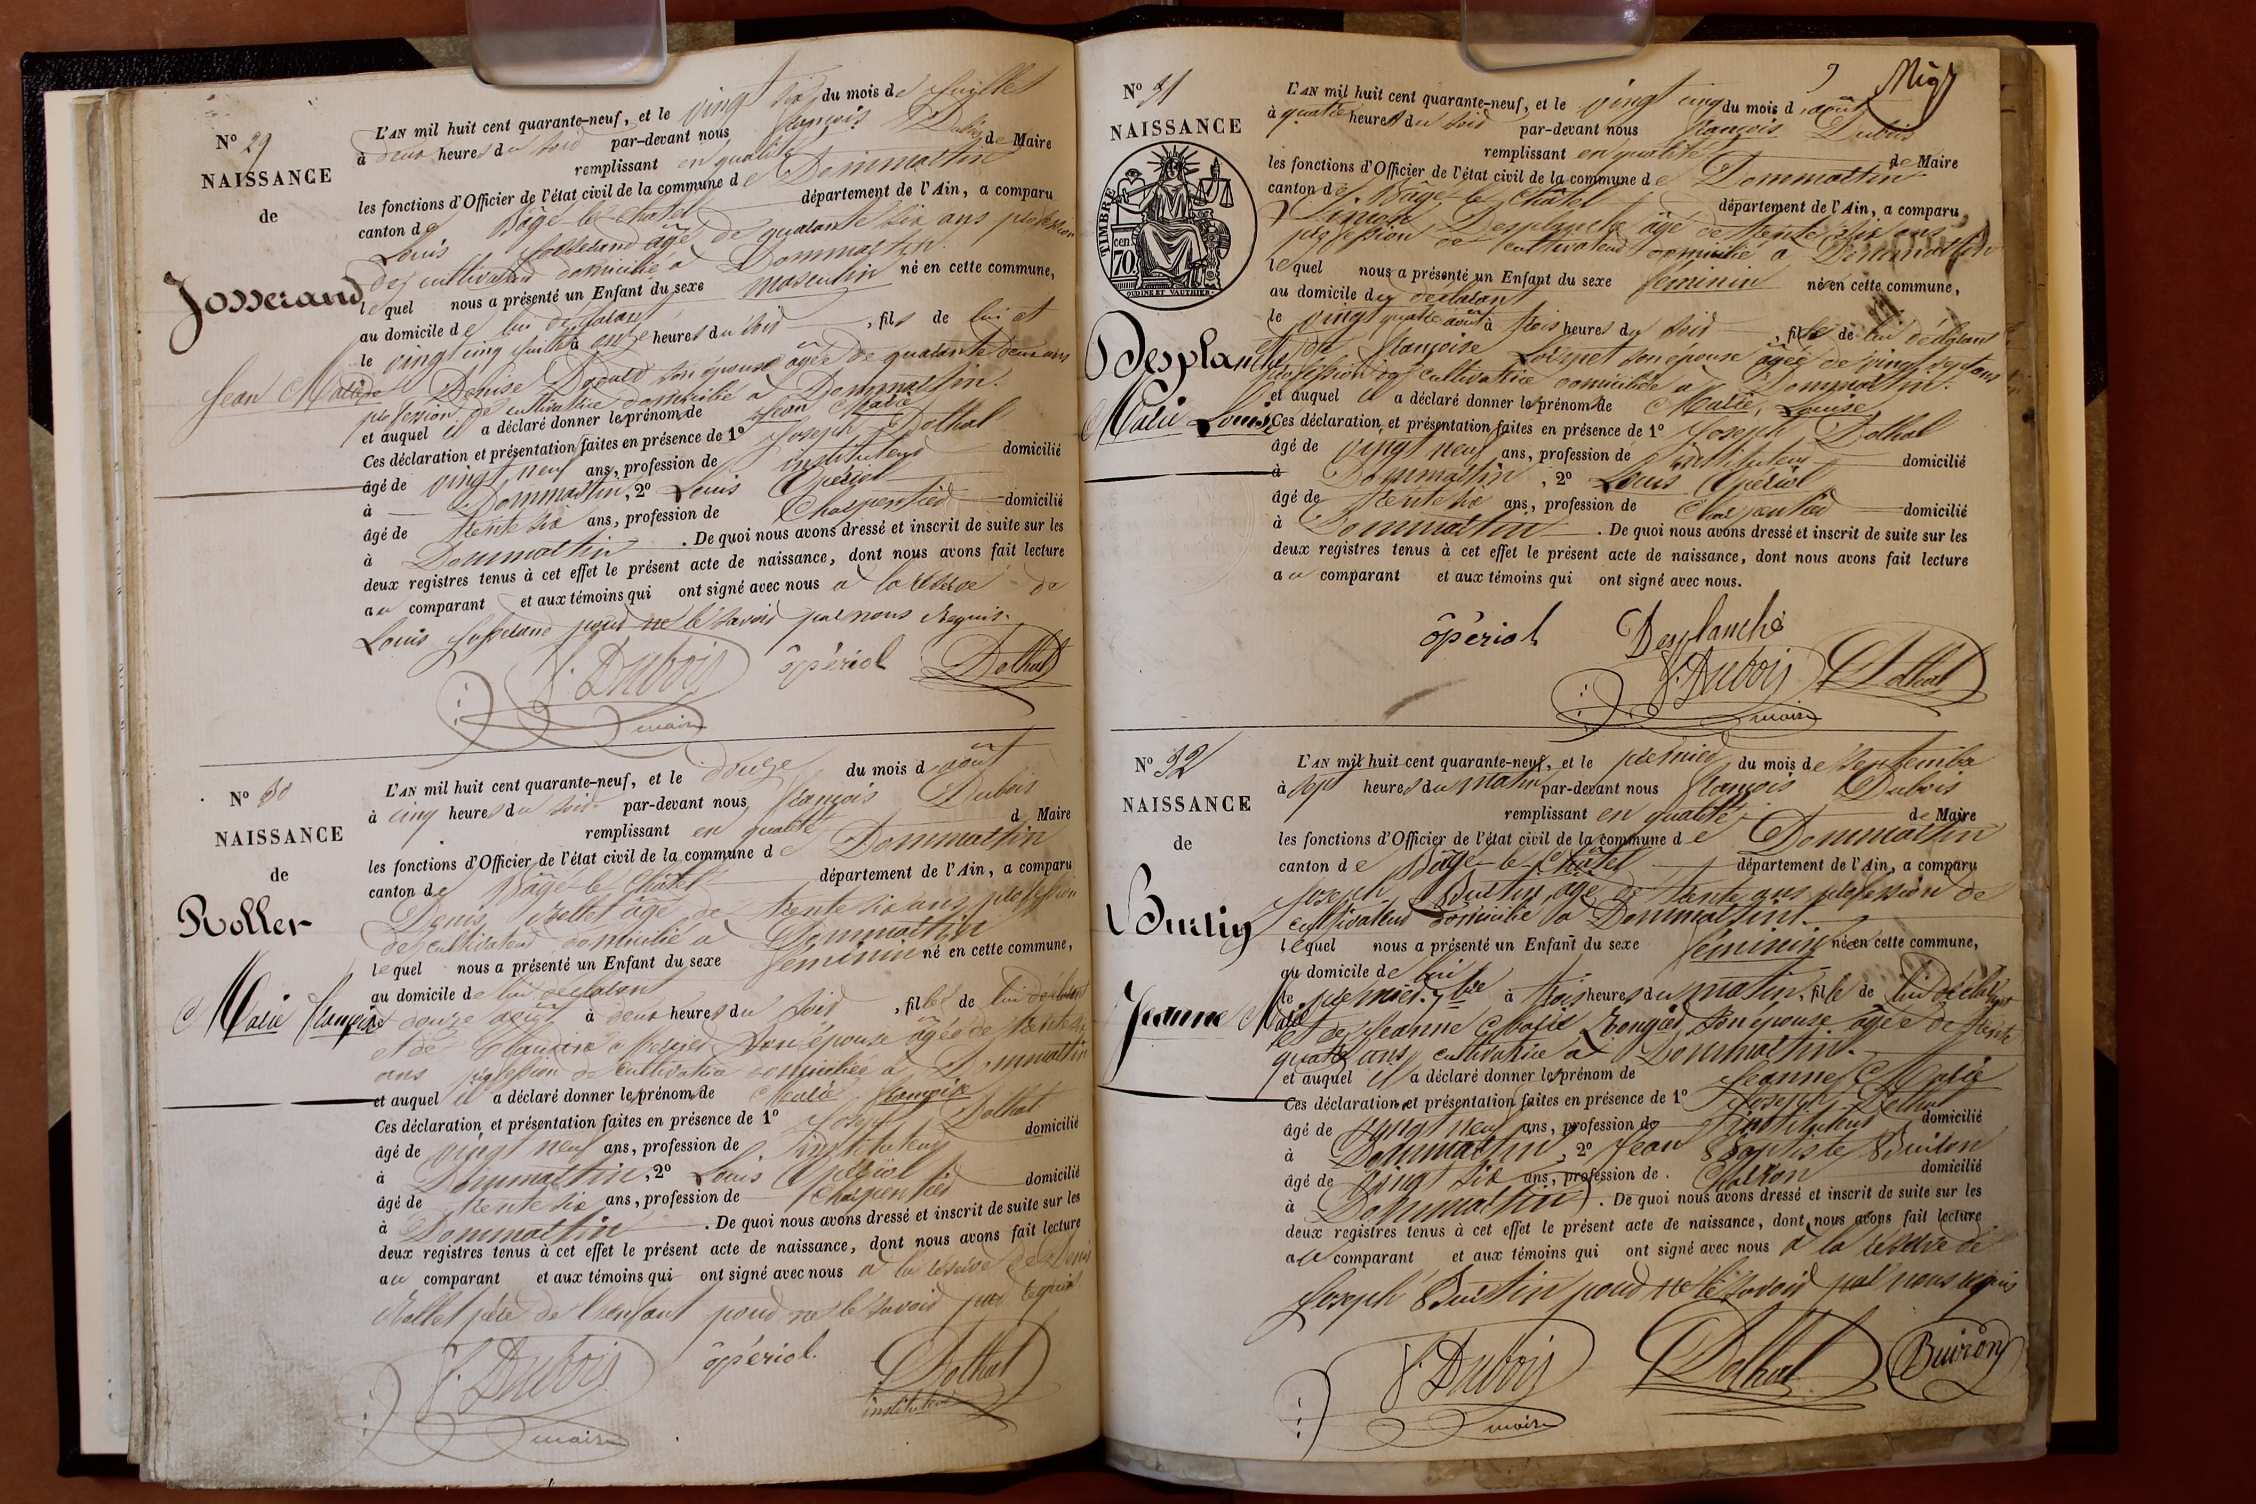 N° 29
NAISSANCE
de
Josserand
Jean Marie
L'AN mil huit cent quarante-neuf, et le vingt six du mois de Juillet
à deux heures du soir par-devant nous François Dubois
remplissant en qualité de Maire
les fonctions d'Officier de l'état civil de la commune de Dommartin
canton de Bâgé-le-Châtel département de l'Ain, a comparu
Louis Josserand âgé de quarante six ans profession
de cultivateur domicilié à Dommartin
lequel nous a présenté un Enfant du sexe masculin né en cette commune,
au domicile de lui déclarant
le vingt cinq juillet à onze heures du soir, fils de lui et
de Denise son épouse âgée de quarante deux ans
profession de cultivatrice domiciliée à Dommartin.
et auquel il a déclaré donner les prénom de Jean Marie
Ces déclaration et présentation faites en présence de 1° Joseph Dothal
âgé de vingt neuf ans, profession de instituteur domicilié
à Dommartin, 2° Louis Opériol
âgé de trente six ans, profession de Charpentier domicilié
à Dommartin. De quoi nous avons dressé et inscrit de suite sur les
deux registres tenus à cet effet le présent acte de naissance, dont nous avons fait lecture
au comparant et aux témoins qui ont signé avec nous à la réserve de
Louis Josserand pour ne le savoir par nous Requis.
F. Dubois opériol Dothal
maire
N° 30
NAISSANCE
de
Rollet
Marie Françoise
L'AN mil huit cent quarante-neuf, et le douze du mois d'août
à cinq heures du soir par-devant nous François Dubois
remplissant en qualité d Maire
les fonctions d'Officier de l'état civil de la commune de Dommartin
canton de Bâgé-le-Châtel département de l'Ain, a comparu
Denis Rollet âgé de trente six ans profession
de cultivateur domicilié à Dommartin
lequel nous a présenté un Enfant du sexe féminin né en cette commune,
au domicile de lui déclarant
le douze août à deux heures du soir, fille de lui déclarant
et de Claudine son épouse âgée de trente six
ans profession de cultivatrice domiciliée à Dommartin
et auquel il a déclaré donner les prénom de Marie Françoise
Ces déclaration et présentation faites en présence de 1° Joseph Dothal
âgé de vingt neuf ans, profession de instituteur domicilié
à Dommartin, 2° Louis Opériol
âgé de trente six ans, profession de Charpentier domicilié
à Dommartin. De quoi nous avons dressé et inscrit de suite sur les
deux registres tenus à cet effet le présent acte de naissance, dont nous avons fait lecture
au comparant et aux témoins qui ont signé avec nous à la réserve de Denis
Rollet père de l'enfant pour ne le savoir par requis
F. Dubois opériol. Dothal
maire instituteur
N° 31
NAISSANCE
TIMBRE
cen 70
OUDINE ET VAUTHIER.
Desplanche
Marie Louise
L'AN mil huit cent quarante-neuf, et le vingt cinq du mois d'août
à quatre heures du soir par-devant nous François Dubois
remplissant en qualité de Maire
les fonctions d'Officier de l'état civil de la commune de Dommartin
canton de Bâgé-le-Châtel département de l'Ain, a comparu
Desplanche âgé de trente six ans
profession de cultivateur domicilié à Dommartin
lequel nous a présenté un Enfant du sexe féminin né en cette commune,
au domicile du déclarant
le vingt quatre août à trois heures du soir, fille de lui déclarant
et de Françoise son épouse âgée de vingt sept ans
profession de cultivatrice domiciliée à Dommartin.
et auquel il a déclaré donner les prénom de Marie, Louise
Ces déclaration et présentation faites en présence de 1° Joseph Dothal
âgé de vingt neuf ans, profession de instituteur domicilié
à Dommartin, 2° Louis Opériol
âgé de trente six ans, profession de Charpentier domicilié
à Dommartin. De quoi nous avons dressé et inscrit de suite sur les
deux registres tenus à cet effet le présent acte de naissance, dont nous avons fait lecture
au comparant et aux témoins qui ont signé avec nous.
opériol Desplanche
F. Dubois Dothal
maire
N° 32
NAISSANCE
de
Burtin
Jeanne Marie
L'AN mil huit cent quarante-neuf, et le premier du mois de septembre
à sept heures du matin par-devant nous François Dubois
remplissant en qualité de Maire
les fonctions d'Officier de l'état civil de la commune de Dommartin
canton de Bâgé-le-Châtel département de l'Ain, a comparu
Joseph Burtin âgé de trente ans profession de
cultivateur domicilié à Dommartin.
lequel nous a présenté un Enfant du sexe féminin né en cette commune,
au domicile de lui
le premier 7bre à trois heures du matin, fille de lui déclarant
et de Jeanne Marie son épouse âgée de trente
quatre ans, cultivatrice à Dommartin.
et auquel il a déclaré donner les prénom de Jeanne Marie
Ces déclaration et présentation faites en présence de 1° Joseph Dothal
âgé de vingt neuf ans, profession de instituteur domicilié
à Dommartin, 2° Jean Baptiste Buiron
âgé de vingt six ans, profession de domicilié
à Dommartin. De quoi nous avons dressé et inscrit de suite sur les
deux registres tenus à cet effet le présent acte de naissance, dont nous avons fait lecture
au comparant et aux témoins qui ont signé avec nous à la réserve de
Joseph Burtin pour ne le savoir par nous requis
F. Dubois Dothal Buiron
maire